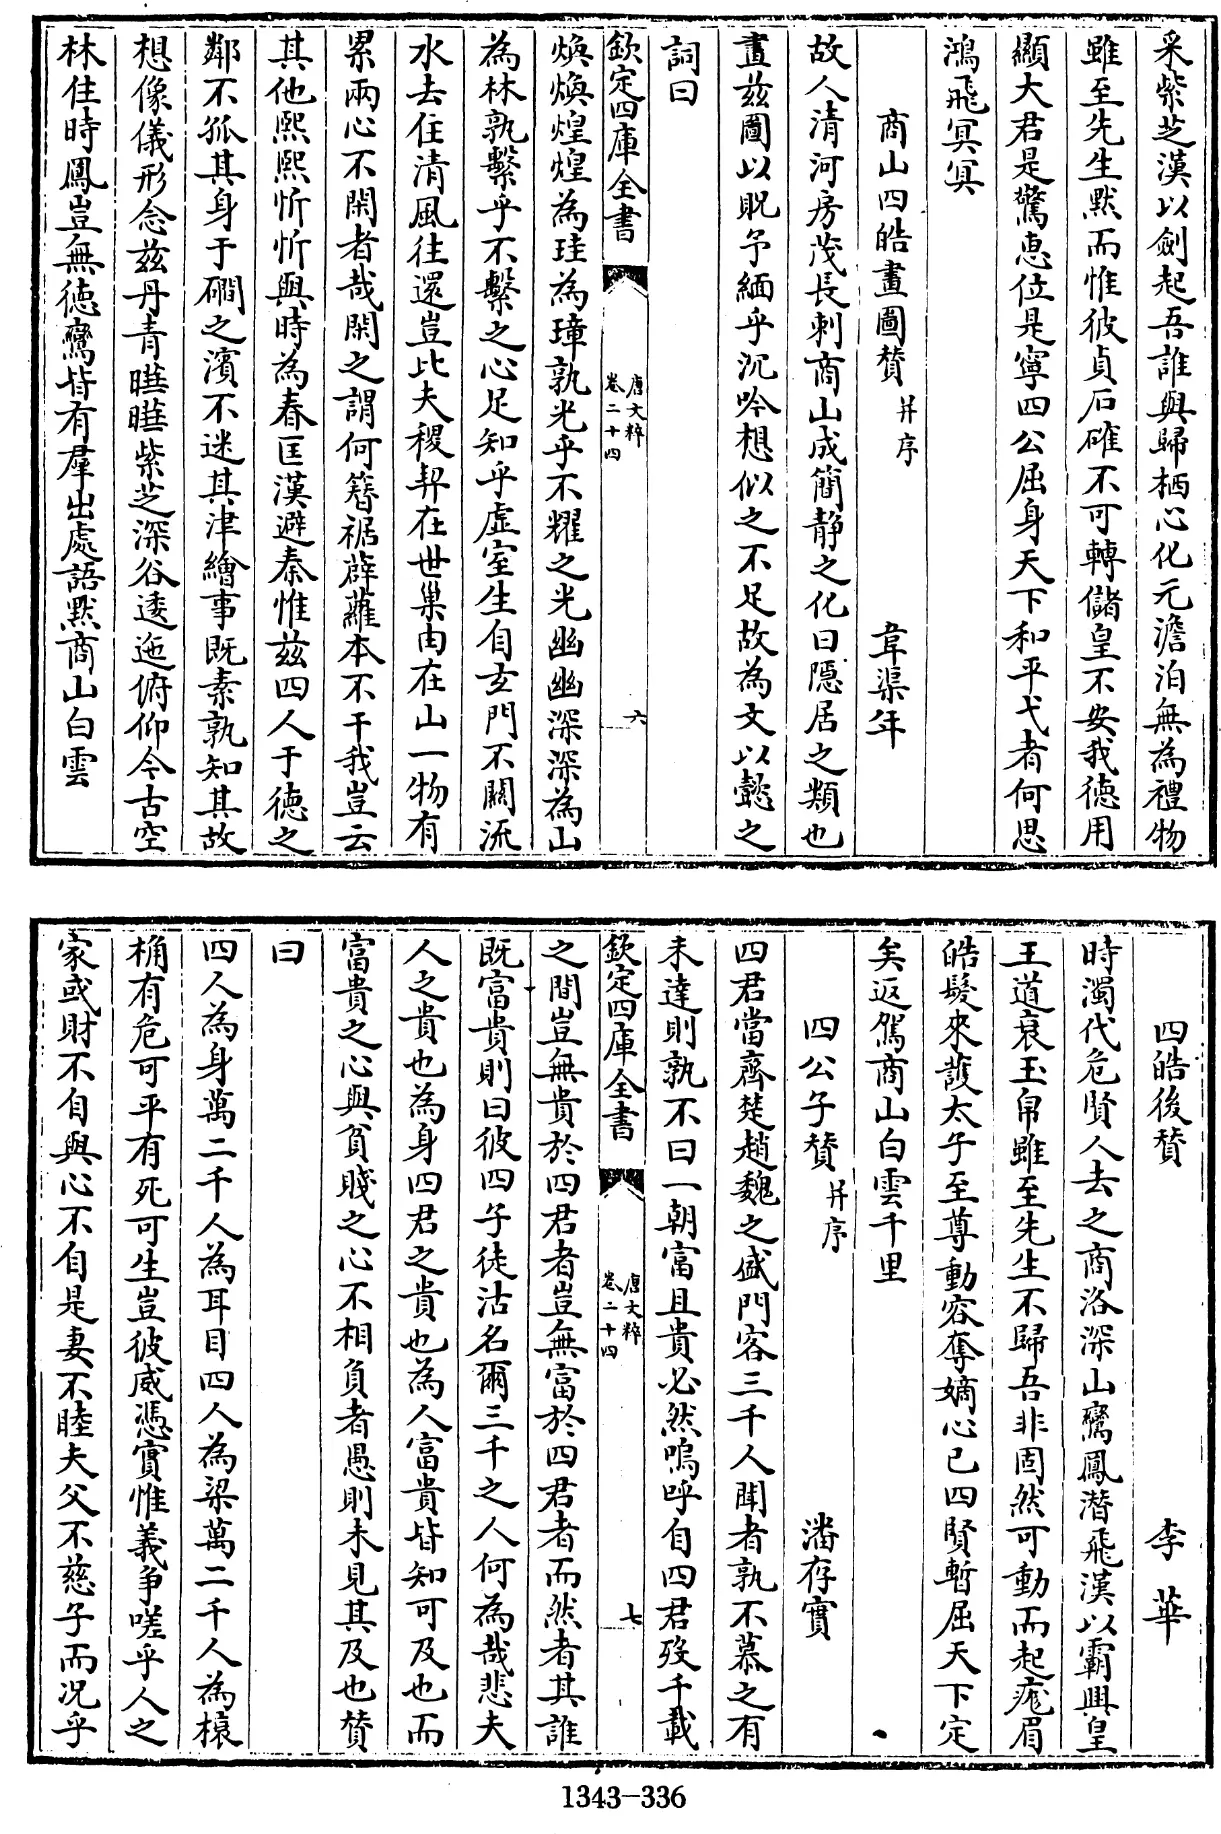 采紫芝漢以劍起吾誰與歸栖心化元澹泊無為禮物
雖至先生默而惟彼貞石確不可轉儲皇不安我德用
顯大君是驚惠位是寧四公屈身天下和平弋者何思
鴻飛冥冥
商山四皓畫圖賛 并序 韋渠牟
故人清河房茂長刺商山成簡静之化曰隱居之類也
畫兹圖以貺予緬乎沉吟想似之不足故為文以懿之
詞曰
欽定四庫全書 唐文粹 卷二十四 六
煥煥煌煌為珪為璋孰光乎不耀之光幽幽深深為山
為林孰繫乎不繫之心足知乎虚室生自玄門不關流
水去住清風往還豈比夫稷契在世巢由在山一物有
累兩心不閑者哉閑之謂何簪裾薜蘿本不干我豈云
其他熙熙忻忻與時為春匡漢避秦惟兹四人于徳之
鄰不孤其身于磵之濱不迷其津繪事既素孰知其故
想像儀形念兹丹青曄曄紫芝深谷逶迤俯仰今古空
林住時鳳豈無徳鸞皆有羣出處語默商山白雲
四皓後賛 李華
時濁代危賢人去之商洛深山鸞鳳潜飛漢以霸興皇
王道衰玉帛雖至先生不歸吾非固然可動而起厖眉
皓髮來護太子至尊動容奪嫡心已四賢暫屈天下定
矣返駕商山白雲千里
四公子賛 并序 潘存實
四君當齊楚趙魏之盛門客三千人聞者孰不慕之有
未達則孰不曰一朝富且貴必然嗚呼自四君殁千載
欽定四庫全書 唐文粹 卷二十四 七
之間豈無貴於四君者豈無富於四君者而然者其誰
既富貴則曰彼四子徒沽名爾三千之人何為哉悲夫
人之貴也為身四君之貴也為人富貴皆知可及也而
富貴之心與貧賤之心不相負者愚則未見其及也賛
曰
四人為身萬二千人為耳目四人為梁萬二千人為榱
桷有危可平有死可生豈彼威憑實惟義争嗟乎人之
家或財不自與心不自是妻不睦夫父不慈子而况乎
1343-336